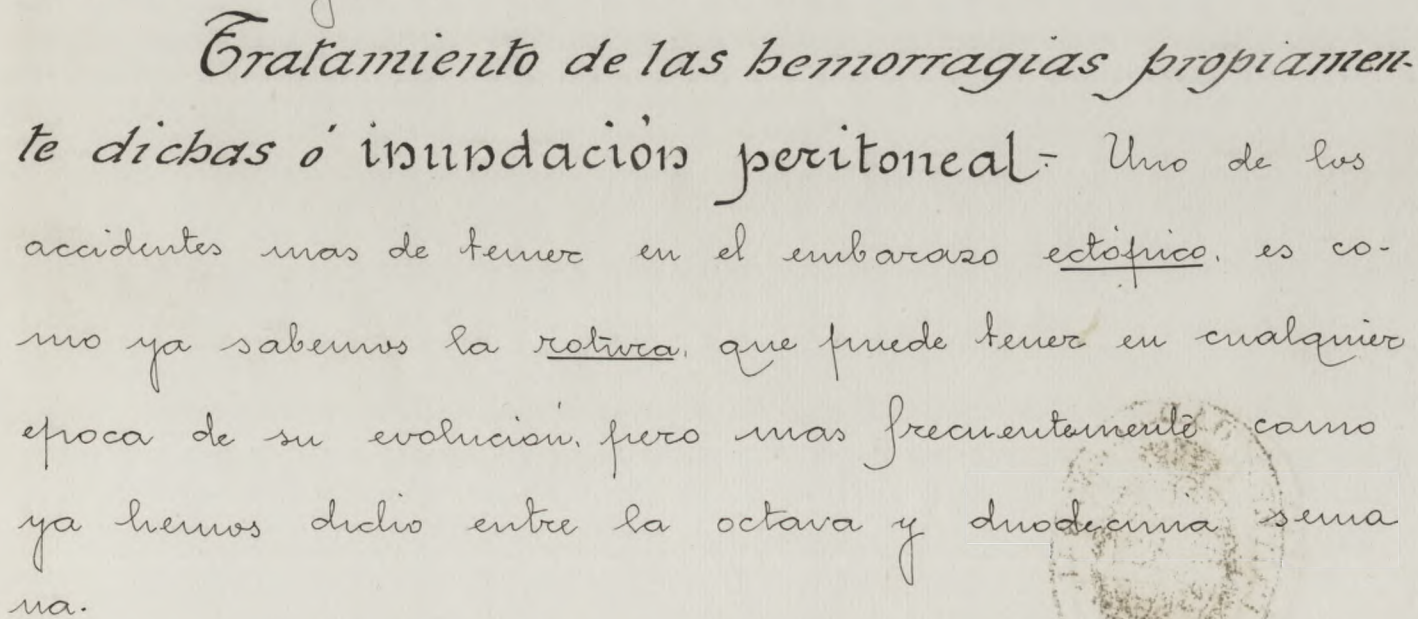 Tratamiento de las hemorragias propiamen-
te dichas ó inundación peritoneal- Uno de los
accidentes mas de temer en el embarazo ectópico, es co-
mo ya sabemos la rotura, que puede tener en cualquier
epoca de su evolución, pero mas frecuentemente como
ya hemos dicho entre la octava y duodecima sema
na.